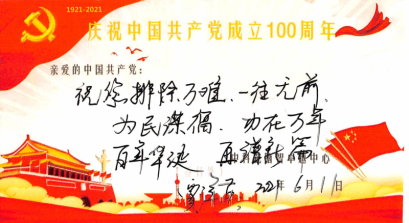 1921-2021
庆祝中国共产党成立100周年
亲爱的中国共产党：
祝您排除万难、一往无前、
为民谋福、功在万年
百年华诞 再谱新篇
中心
2021年6月11日